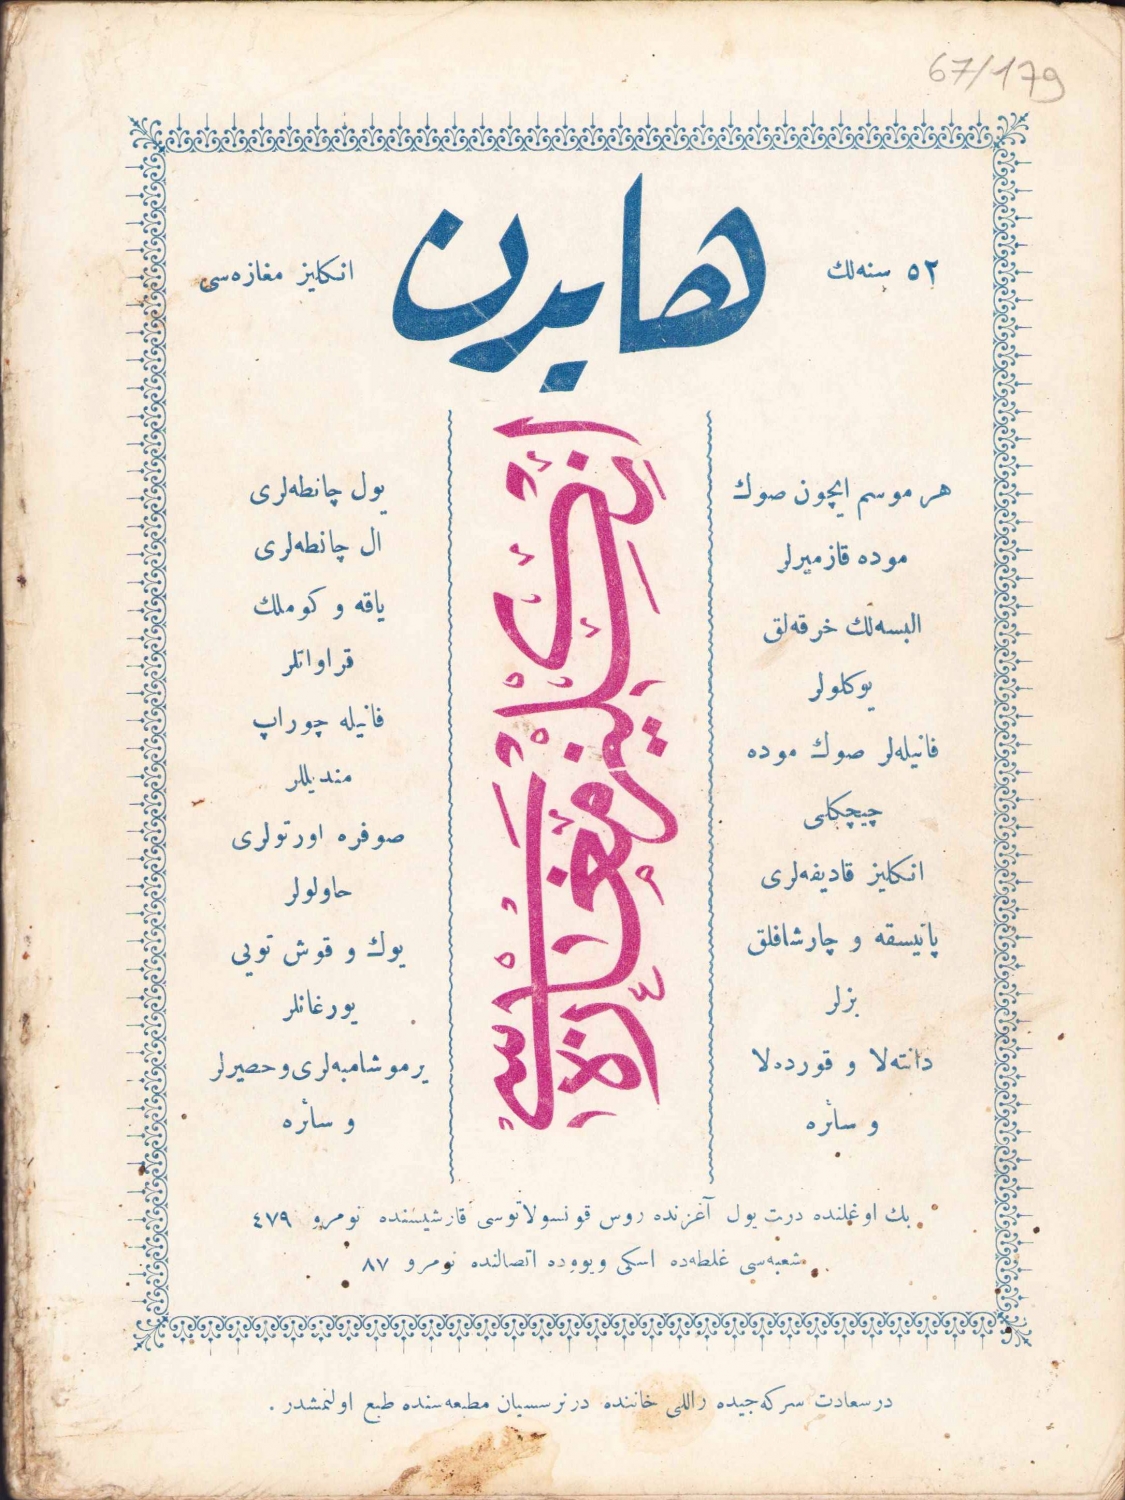 67/179
٥٢ سنه‌لك
هايدن
انكليز مغازه‌سی
انكليز مغازه‌سی
هر موسم ايچون صوك
موده قازميرلر
البسه‌لك خرقه‌لق
يوكلولر
فانيله‌لر صوك موده
چيچكلی
انكليز قاديفه‌لری
پاتيسقه و چارشافلق
بزلر
دانته‌لا و قورده‌لا
و سائره
يول چانطه‌لری
ال چانطه‌لری
ياقه و كوملك
قراواتلر
فانيله چوراپ
منديللر
صوفره اورتولری
حاولولر
يوك و قوش تويی
يورغانلر
يرموشامبه‌لری وحصيرلر
و سائره
بك اوغلنده درت يول آغزنده روس قونسولاتوسی قارشيسنده نومرو ٤٧٩
شعبه‌سی غلطه‌ده اسكی ويووده اتصالنده نومرو ٨٧
درسعادت سركه‌جيده راللی خاننده درنرسسيان مطبعه‌سنده طبع اولنمشدر .